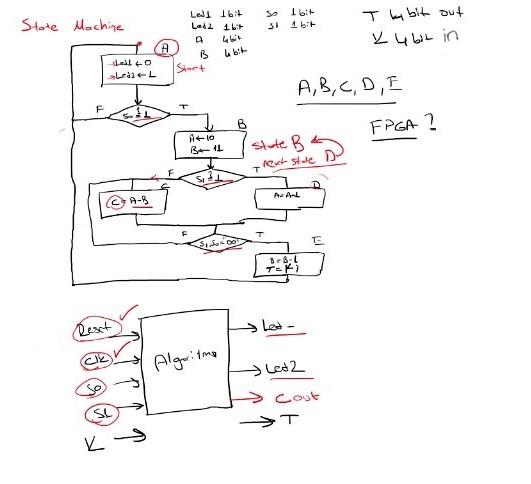 State Machine
Led1 1bit S0 1bit
Led2 1bit S1 1bit
A 4bit
B 4bit
T 4bit out
K 4bit in
A
Led1 ← 0
Led2 ← 1
Start
A, B, C, D, E
FPGA ?
F
S0=1
T
B
A ← 10
B ← 11
State B
next state D
F
S1=1
T
C
C = A-B
D
A=A-1
F
S1,S0="00"
T
E
B=B-1
T=K
Reset
Clk
S0
S1
K
Algoritma
Led-
Led2
Cout
T